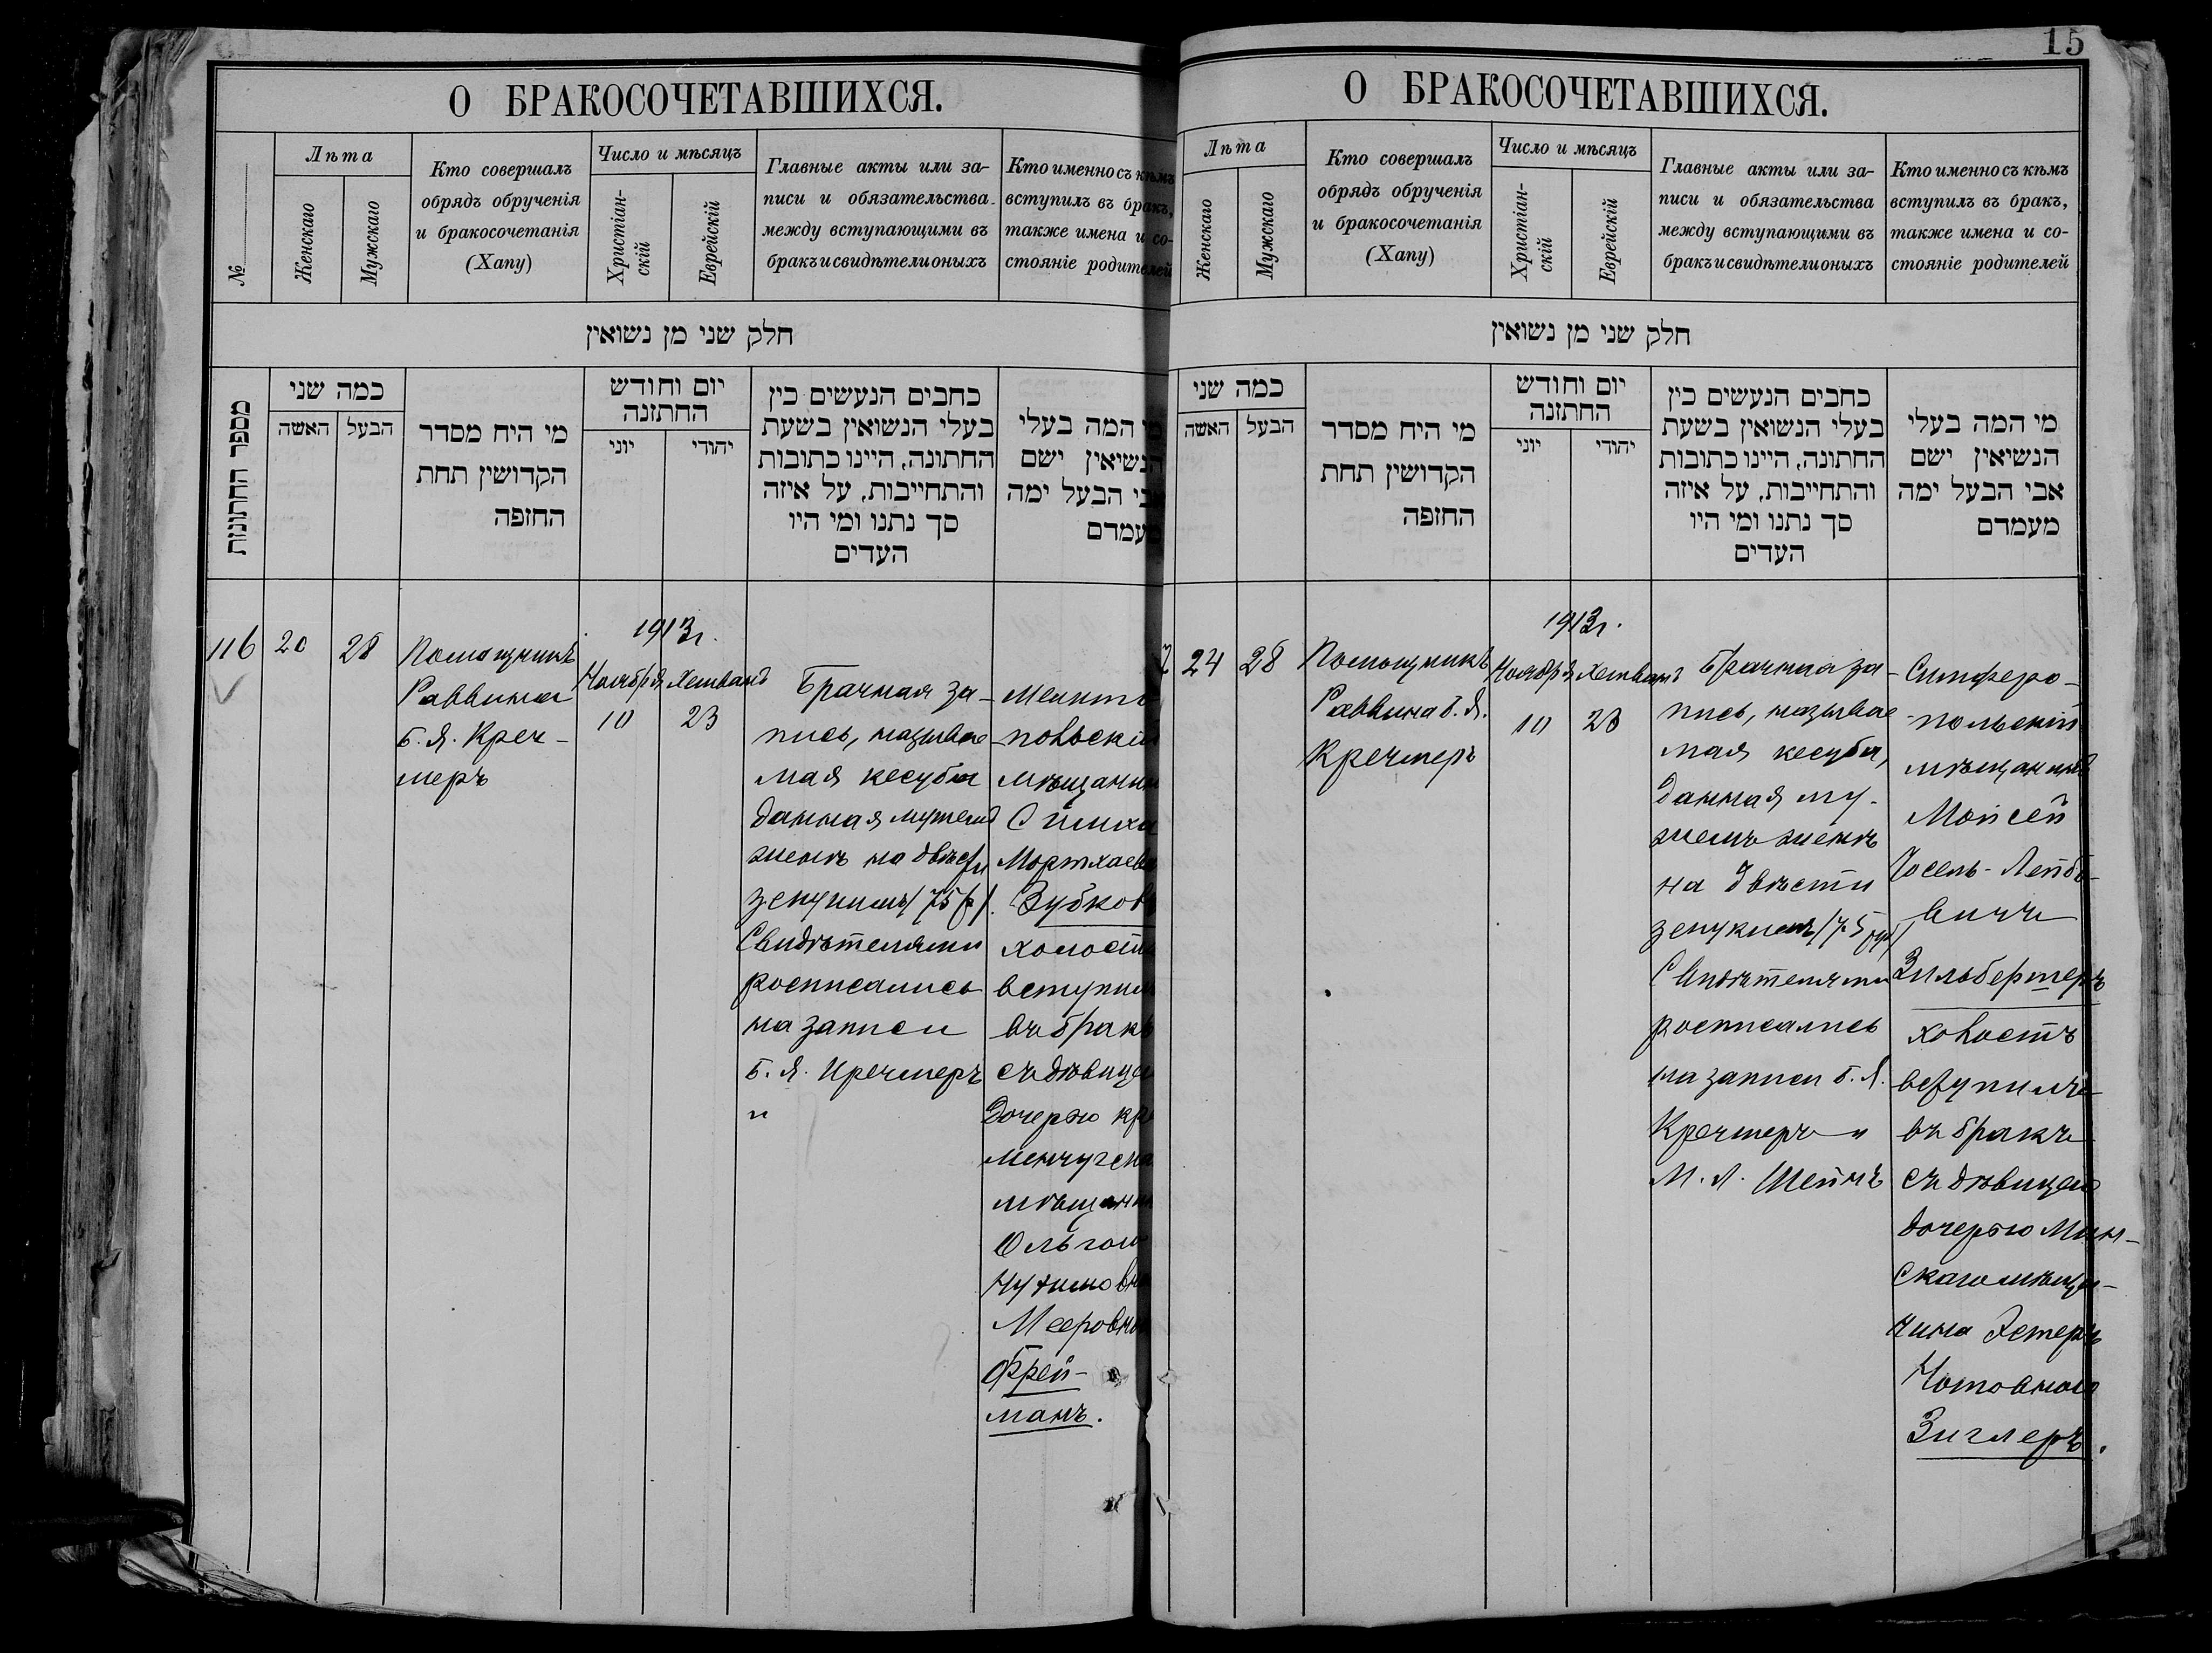 15
О БРАКОСОЧЕТАВШИХСЯ.
№
Лѣта
Женскаго
Мужскаго
Кто совершалъ
обрядъ обрученія
и бракосочетанія
(Хапу)
Число и мѣсяцъ
Христіан-
скій
Еврейскій
Главные акты или за-
писи и обязательства
между вступающими въ
бракъ и свидѣтели оныхъ
Кто именно съ кѣмъ
вступилъ въ бракъ,
также имена и со-
стояніе родителей
חלק שני מן נשואין
מספר החתונות
כמה שני
האשה
הבעל
מי היח מסדר
הקדושין תחת
החזפה
יום וחודש
החתזנה
יוני
יהודי
כחבים הנעשים כין
בעלי הנשואין בשעת
החתונה, היינו כתובות
והתחייבות, על איזה
סך נתנו ומי היו
העדים
מי המה בעלי
הנשיאין ישם
אבי הבעל ימה
מעמדם
116
20
28
Помощникъ
Раввина
Б. Я. Креч-
меръ
1913 г.
Ноября Хешванъ
10 23
Брачная за-
пись, называе
мая кесуба
данная мужемъ
женѣ на двѣсти
зекукимъ (75 р).
Свидѣтелями
росписались
на записи
Б. Я. Кречмеръ
и
Мелито-
польскій
мѣщанин
Симха
Мортхаев
Зубков
холостъ
вступилъ
въ бракъ
съ дѣвицею
дочерью кре
менчугска
мѣщанин
Ольгою
Нухимовн
Мееровн
Фрей-
манъ.
О БРАКОСОЧЕТАВШИХСЯ.
Лѣта
Женскаго
Мужскаго
Кто совершалъ
обрядъ обрученія
и бракосочетанія
(Хапу)
Число и мѣсяцъ
Христіан-
скій
Еврейскій
Главные акты или за-
писи и обязательства
между вступающими въ
бракъ и свидѣтели оныхъ
Кто именно съ кѣмъ
вступилъ въ бракъ,
также имена и со-
стояніе родителей
חלק שני מן נשואין
כמה שני
האשה
הבעל
מי היח מסדר
הקדושין תחת
החזפה
יום וחודש
החתזנה
יוני
יהודי
כחבים הנעשים כין
בעלי הנשואין בשעת
החתונה, היינו כתובות
והתחייבות, על איזה
סך נתנו ומי היו
העדים
מי המה בעלי
הנשיאין ישם
אבי הבעל ימה
מעמדם
7
24
28
Помощникъ
Раввина Б. Я.
Кречмеръ
1913 г.
Ноября Хешванъ
10 23
Брачная за-
пись, называе
мая кесуба,
данная му-
жемъ женѣ
на двѣсти
зекукимъ (75 руб)
Свидѣтелями
росписались
на записи Б. Я.
Кречмеръ и
М. Л. Шейнъ
Симферо-
польскій
мѣщанинъ
Мойсей
Іосель-Лейбо-
вичъ
Зильберштеръ
холостъ
вступилъ
въ бракъ
съ дѣвицею
дочерью Мин-
скаго мѣща-
нина Эстеръ
Нотовною
Зиглеръ.